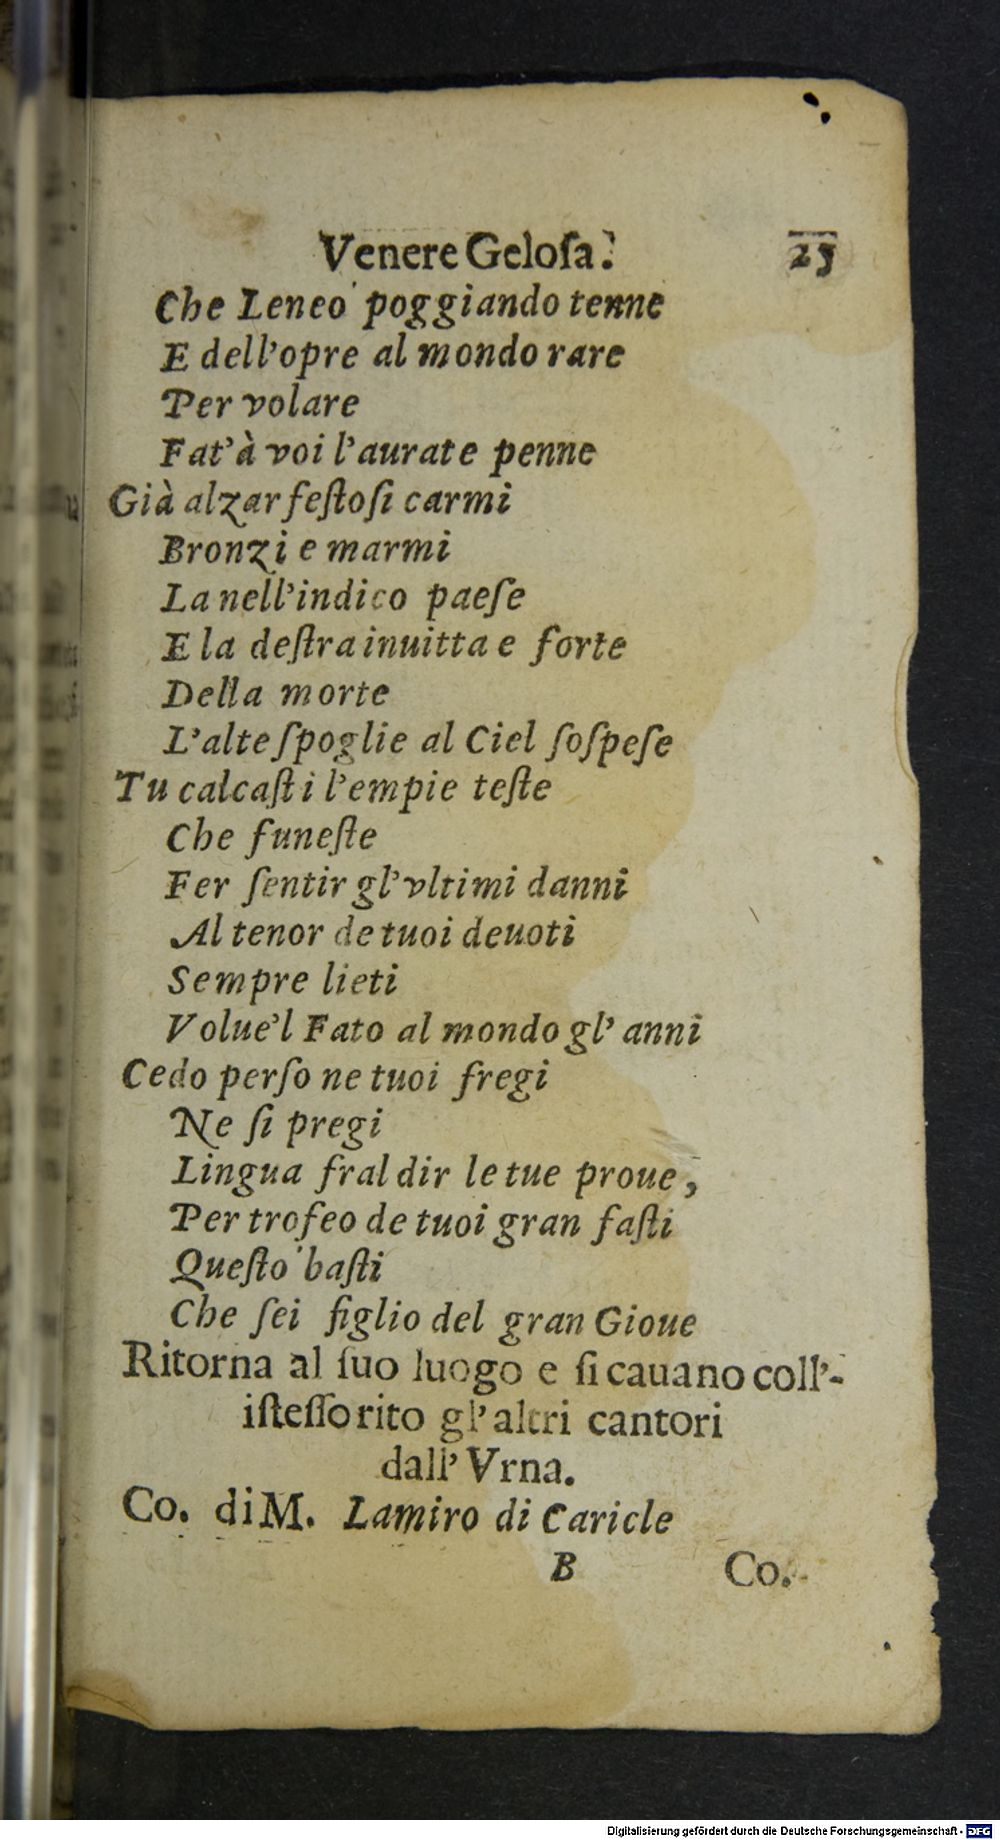 Venere Geloſa. 25
Che Leneo poggiando tenne
E dell'opre al mondo rare
Per volare
Fat'à voi l'aurate penne
Già alzar feſtoſi carmi
Bronzi e marmi
La nell'indico paeſe
E la deſtra inuitta e forte
Della morte
L'alte ſpoglie al Ciel ſoſpeſe
Tu calcaſti l'empie teſte
Che funeſte
Fer ſentir gl'vltimi danni
Al tenor de tuoi deuoti
Sempre lieti
Volue'l Fato al mondo gl' anni
Cedo perſo ne tuoi fregi
Ne ſi pregi
Lingua fral dir le tue proue,
Per trofeo de tuoi gran faſti
Queſto baſti
Che ſei figlio del gran Gioue
Ritorna al ſuo luogo e ſi cauano coll'-
iſteſſo rito gl'altri cantori
dall' Vrna.
Co. di M. Lamiro di Caricle
B Co.
Digitalisierung gefördert durch die Deutsche Forschungsgemeinschaft - DFG